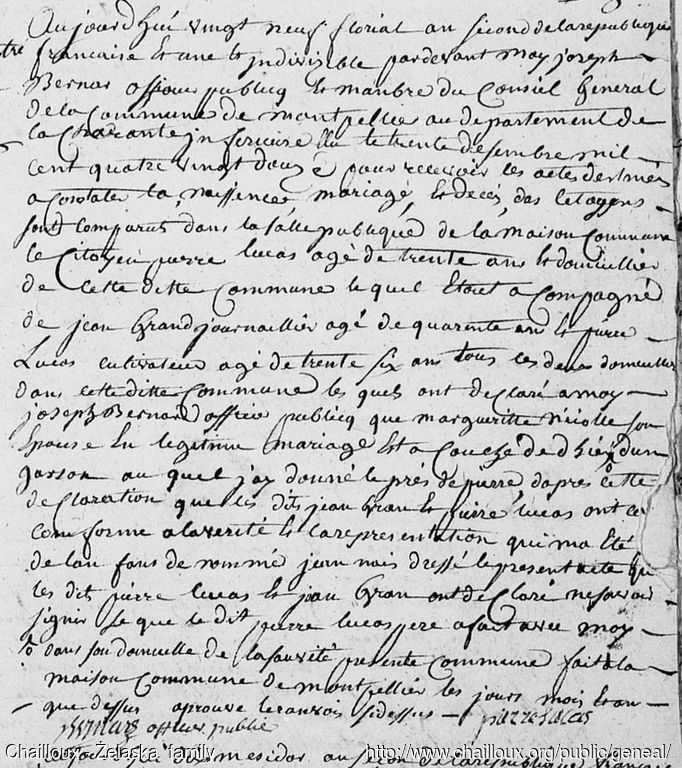 Aujourd hui vingt neuf florial an second de la republique
francaise et une et indivisible pardevant moy joseph
Bernar officier publicq et manbre du Conseil General
de la Commune de montpellier au departement de
la Charante jnferieure Elu le trente desembre mil
cent quatre vingt douze pour recevoir les actes destinés
a constater la naissence, mariage, et decés des Citoyens
sont comparus dans la salle publique de la maison Commune
le Citoyen pierre lucas agé de trente ans et domicillier
de Cette ditte Commune le quel Etoit acompagné
de jean Grand journaillier agé de quarente ans et pierre
Lucas cultivateur agé de trente six ans tous les deux domicillier
dans cette ditte Commune les quels ont declaré a moy
joseph Bernard officier publicq que margueritte Nicolle son
Epouse En legitime mariage est acouché de d'hiér dun
garson au quel j'ay donné le prés de pierre dapres Cette
declaration que les dits jean Gran et pierre lucas ont
Conforme a la verité et la representation qui ma Eté
de lan fans de nommé jeun nais dressé le present acte
les dit pierre lucas et jean Gran ont declaré ne savoir
signer Le que le dit pierre lucas pere a fait avec moy
dans son domicille de la sauvité presente Commune fait a la
maison Commune de montpellier les jours mois et an
que dessus aprouve
Bernard officier public pierre lucas
mesidor an second de la republique francaise
Chailloux - Żelacka family http://www.chailloux.org/public/geneal/